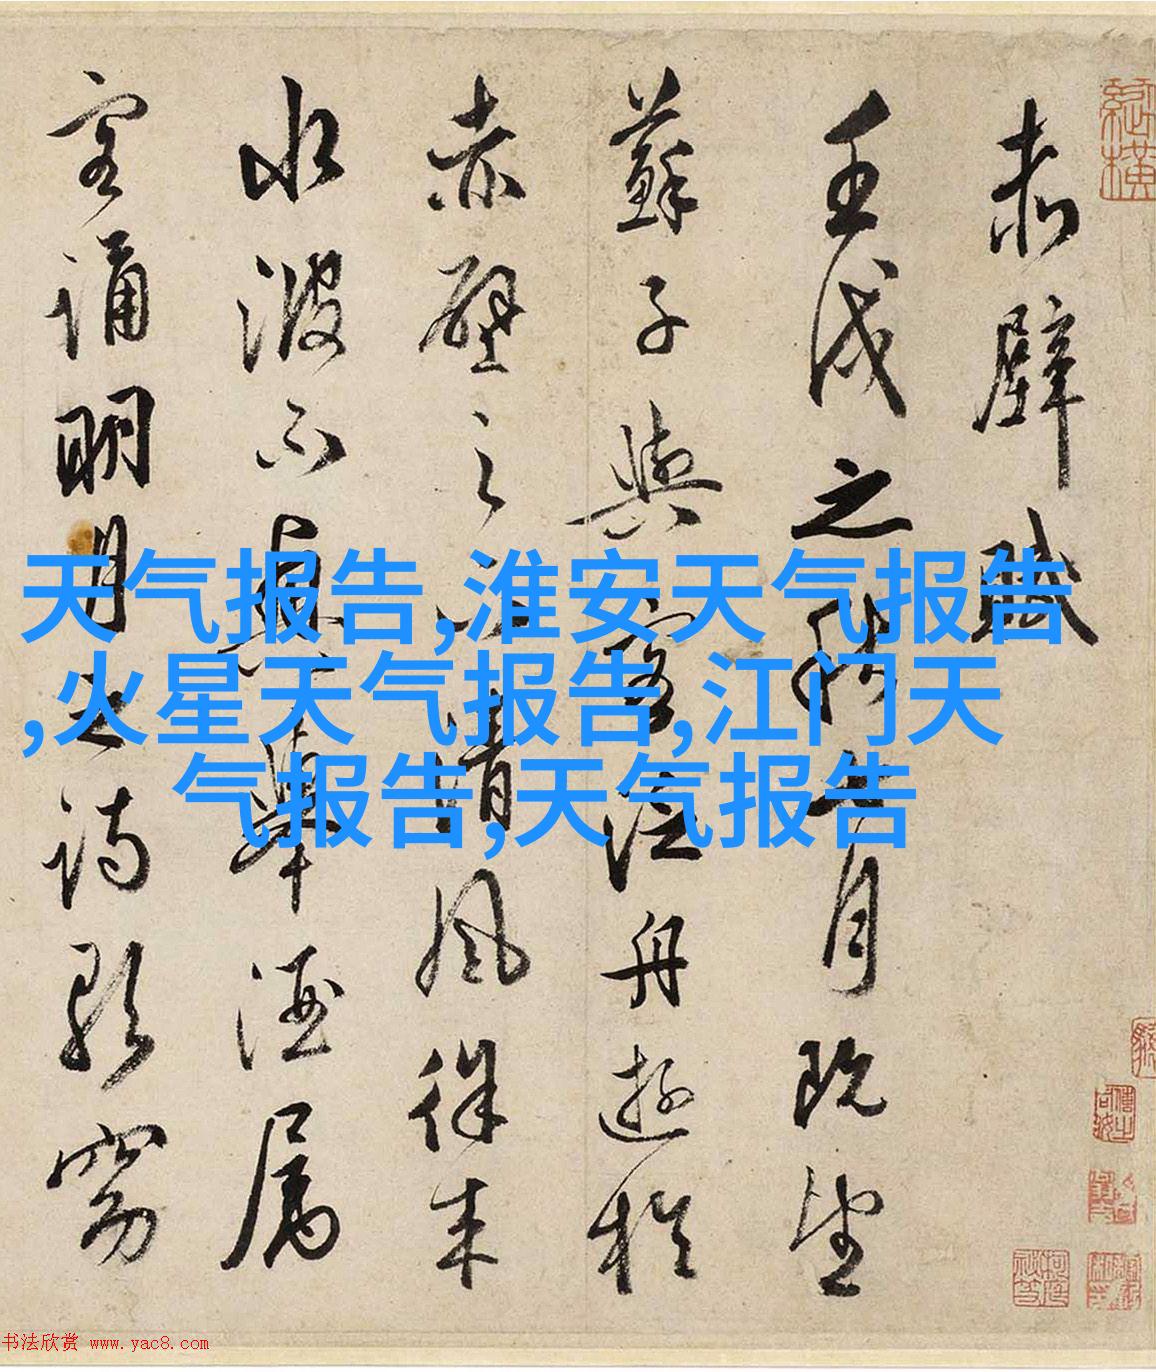 赤壁賦
壬戌之秋七月既望
蘇子與客泛舟遊於
赤壁之下清風徐来
水波不興舉酒属
客誦明月之詩歌窈
天气报告,淮安天气报告
,火星天气报告,江门天
气报告,天气报告
书法欣赏 www.yac8.com